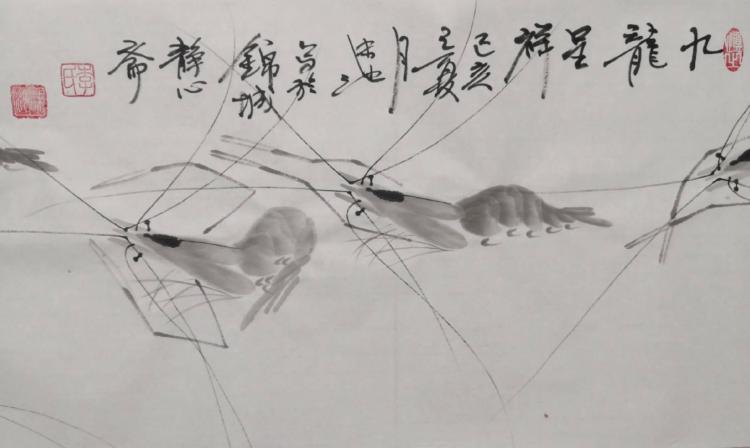 九龍呈祥己亥夏月写於錦城静心斋